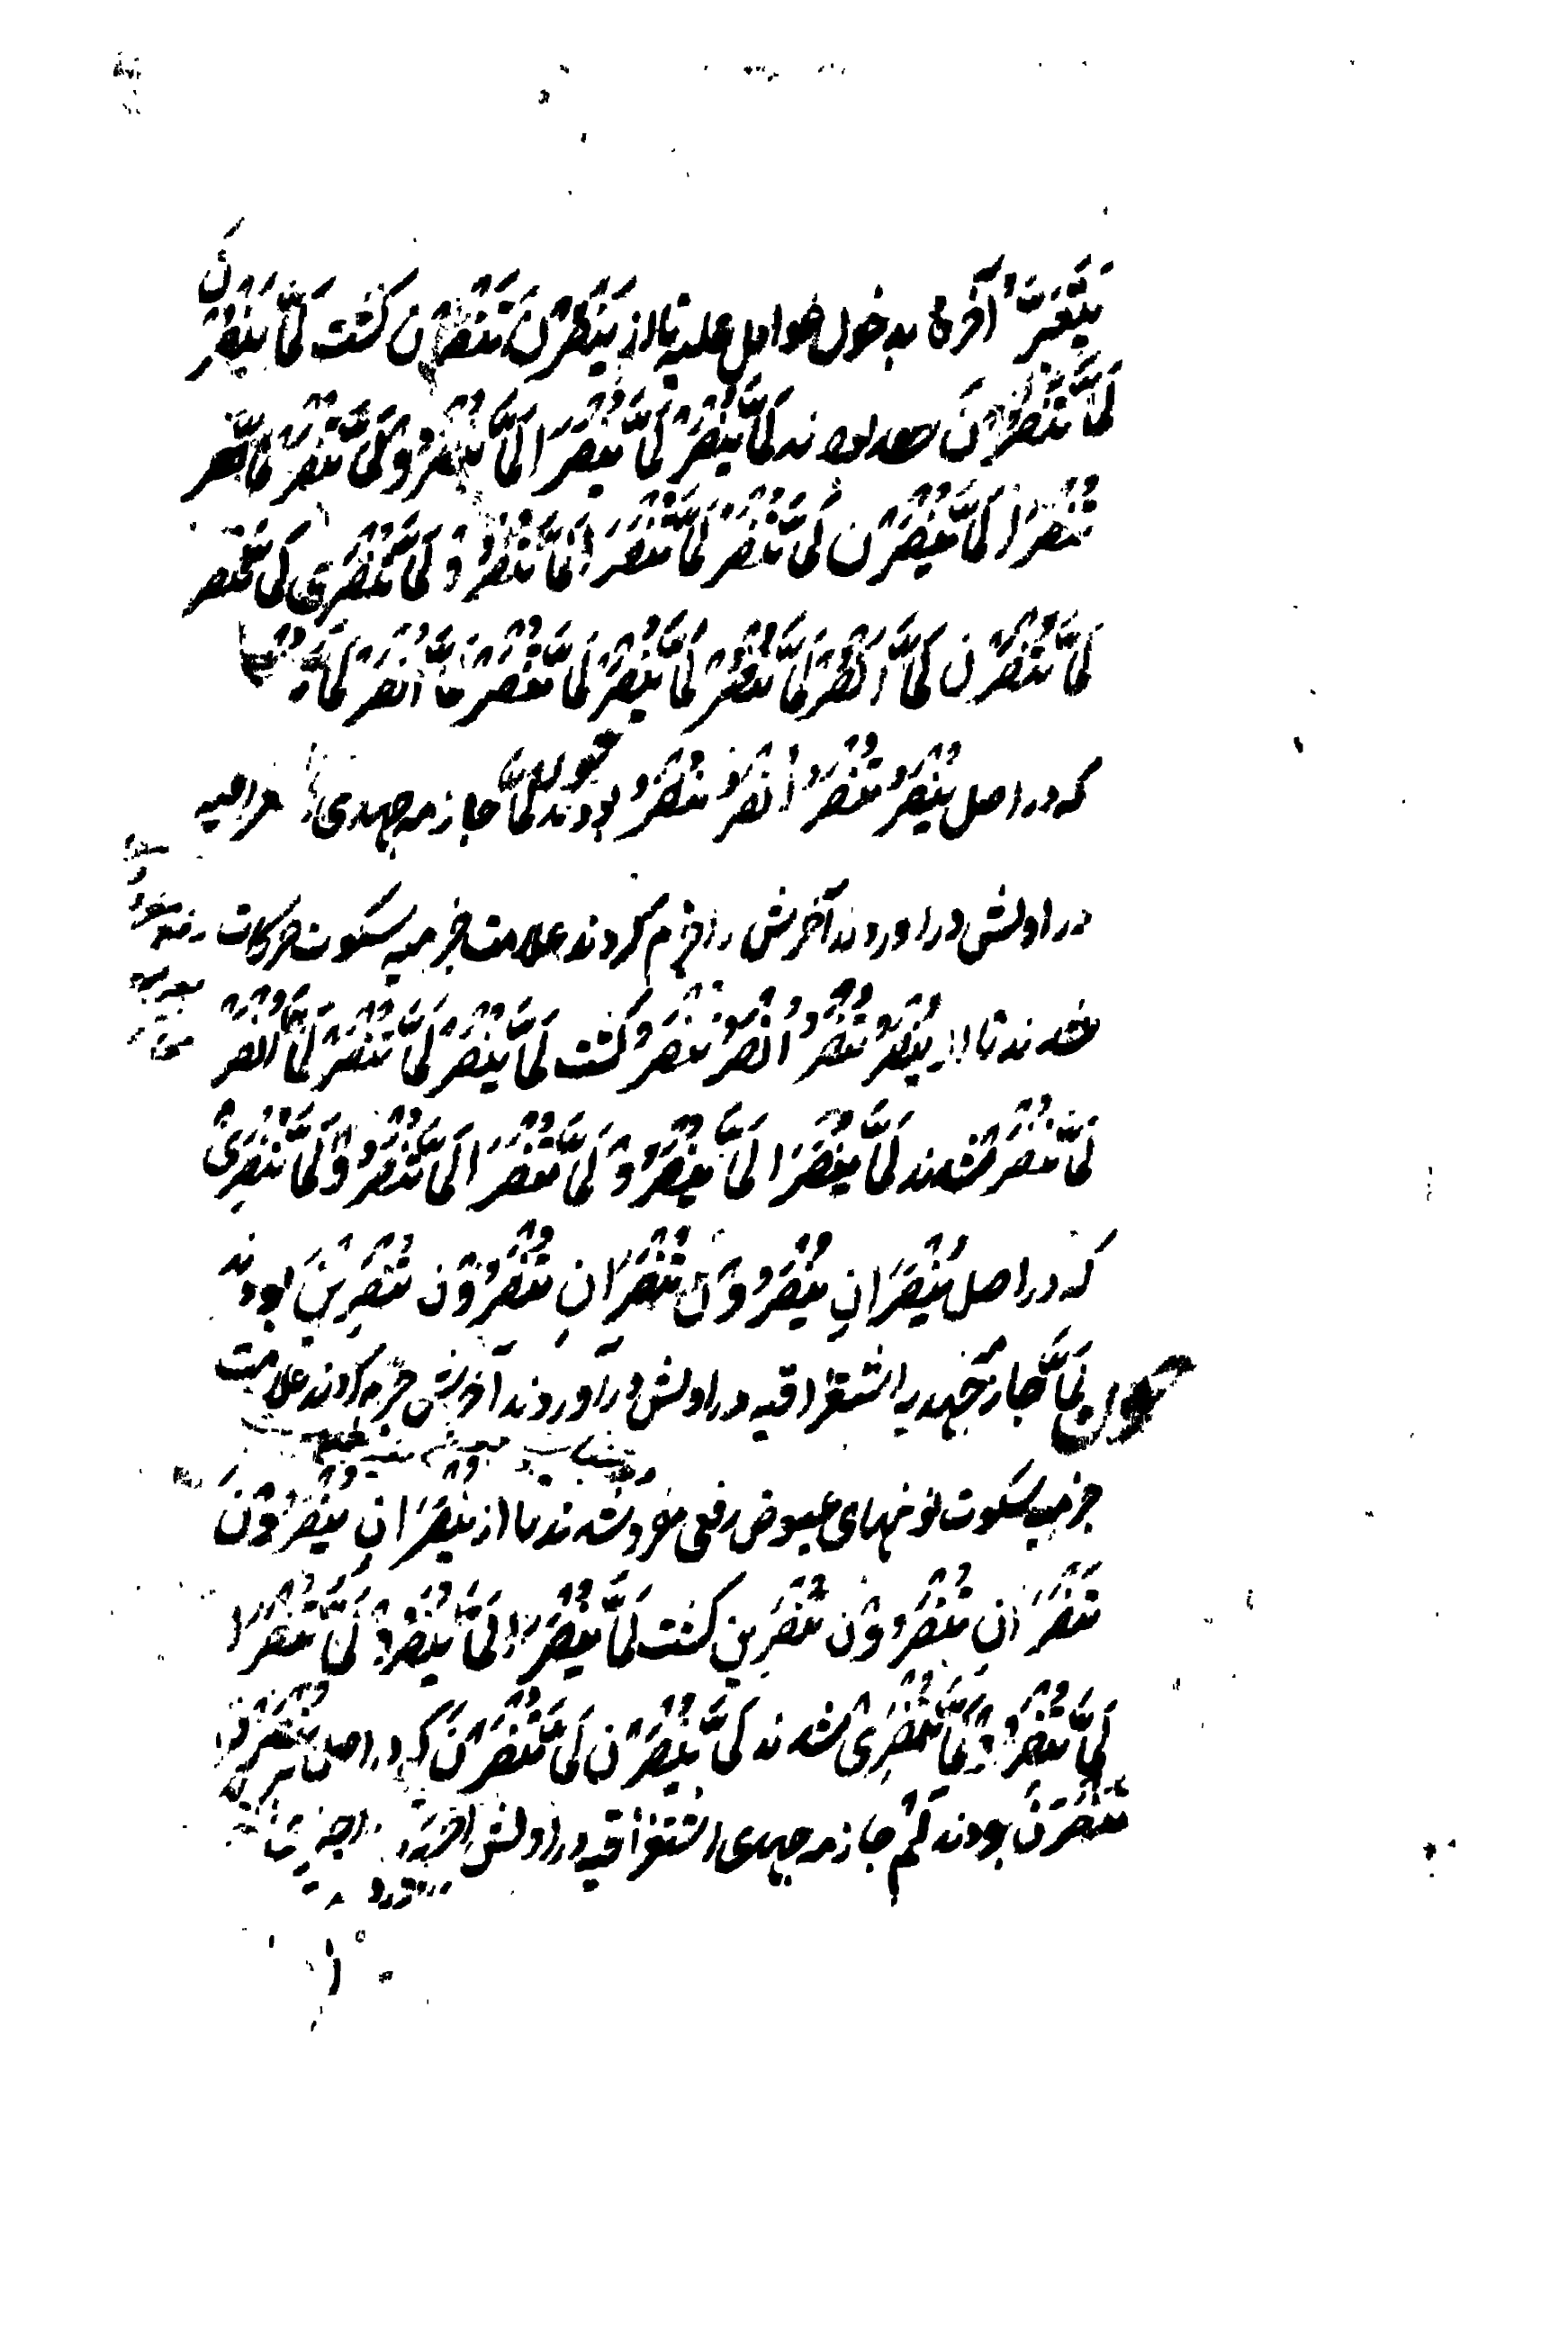 یَتَغَیَّرُ آخره بدخول عوامل علیه تا از یَنْصُرْنَ تَنْصُرْنَ گشت لَمَّا یَنْصُرْنَ
لَمَّا تَنْصُرْنَ شدند لَمَّا یُنْصَرْ لَمَّا یُنْصَرَا لَمَّا یُنْصَرُوْا لَمَّا تُنْصَرْ لَمَّا
تُنْصَرَا لَمَّا یُنْصَرْنَ لَمَّا تُنْصَرْ لَمَّا تُنْصَرَا لَمَّا تُنْصَرُوْا لَمَّا تُنْصَرِیْ لَمَّا تُنْصَرَا
لَمَّا تُنْصَرْنَ لَمَّا اُنْصَرْ لَمَّا نُنْصَرْ لَمَّا یُنْصَرْ لَمَّا تُنْصَرْ لَمَّا اُنْصَرْ لَمَّا نُنْصَرْ
که در اصل یُنْصَرُ تُنْصَرُ اُنْصَرُ نُنْصَرُ بودند چون لَمَّا جازمه جهدی
در اولش درآوردند آخرش را جزم کردند علامت جزمیه سکوت حرکات
شدند تا از یُنْصَرُ تُنْصَرُ اُنْصَرُ نُنْصَرُ گشت لَمَّا یُنْصَرْ لَمَّا تُنْصَرْ لَمَّا اُنْصَرْ
لَمَّا نُنْصَرْ شدند لَمَّا یُنْصَرَا لَمَّا یُنْصَرُوْا لَمَّا تُنْصَرَا لَمَّا تُنْصَرُوْا لَمَّا تُنْصَرِیْ
که در اصل یُنْصَرَانِ یُنْصَرُوْنَ تُنْصَرَانِ تُنْصَرُوْنَ تُنْصَرِیْنَ بودند
چون لَمَّا جازمه جهدیه استغراقیه در اولش درآوردند آخرش جزم کردند علامت
جزمیه سکوت نونهای عیوض رفعی مفرد شدند تا از یُنْصَرَانِ یُنْصَرُوْنَ
تُنْصَرَانِ تُنْصَرُوْنَ تُنْصَرِیْنَ گشت لَمَّا یُنْصَرَا لَمَّا یُنْصَرُوْا لَمَّا تُنْصَرَا
لَمَّا تُنْصَرُوْا لَمَّا تُنْصَرِیْ شدند لَمَّا یُنْصَرْنَ لَمَّا تُنْصَرْنَ که در اصل یُنْصَرْنَ
تُنْصَرْنَ بودند لَمْ جازمه جهدی استغراقیه در اولش